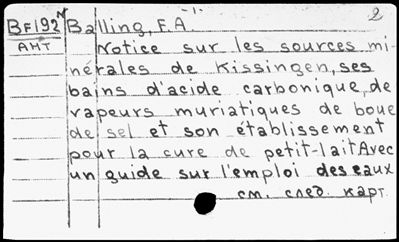 -1-
2
BF192N Balling, F.A.
АНТ Notice sur les sources mi-
nérales de Kissingen, ses
bains d'acide carbonique, de
vapeurs muriatiques de boue
de sel et son établissement
pour la cure de petit-lait Avec
un guide sur l'emploi des eaux
см. след. карт.